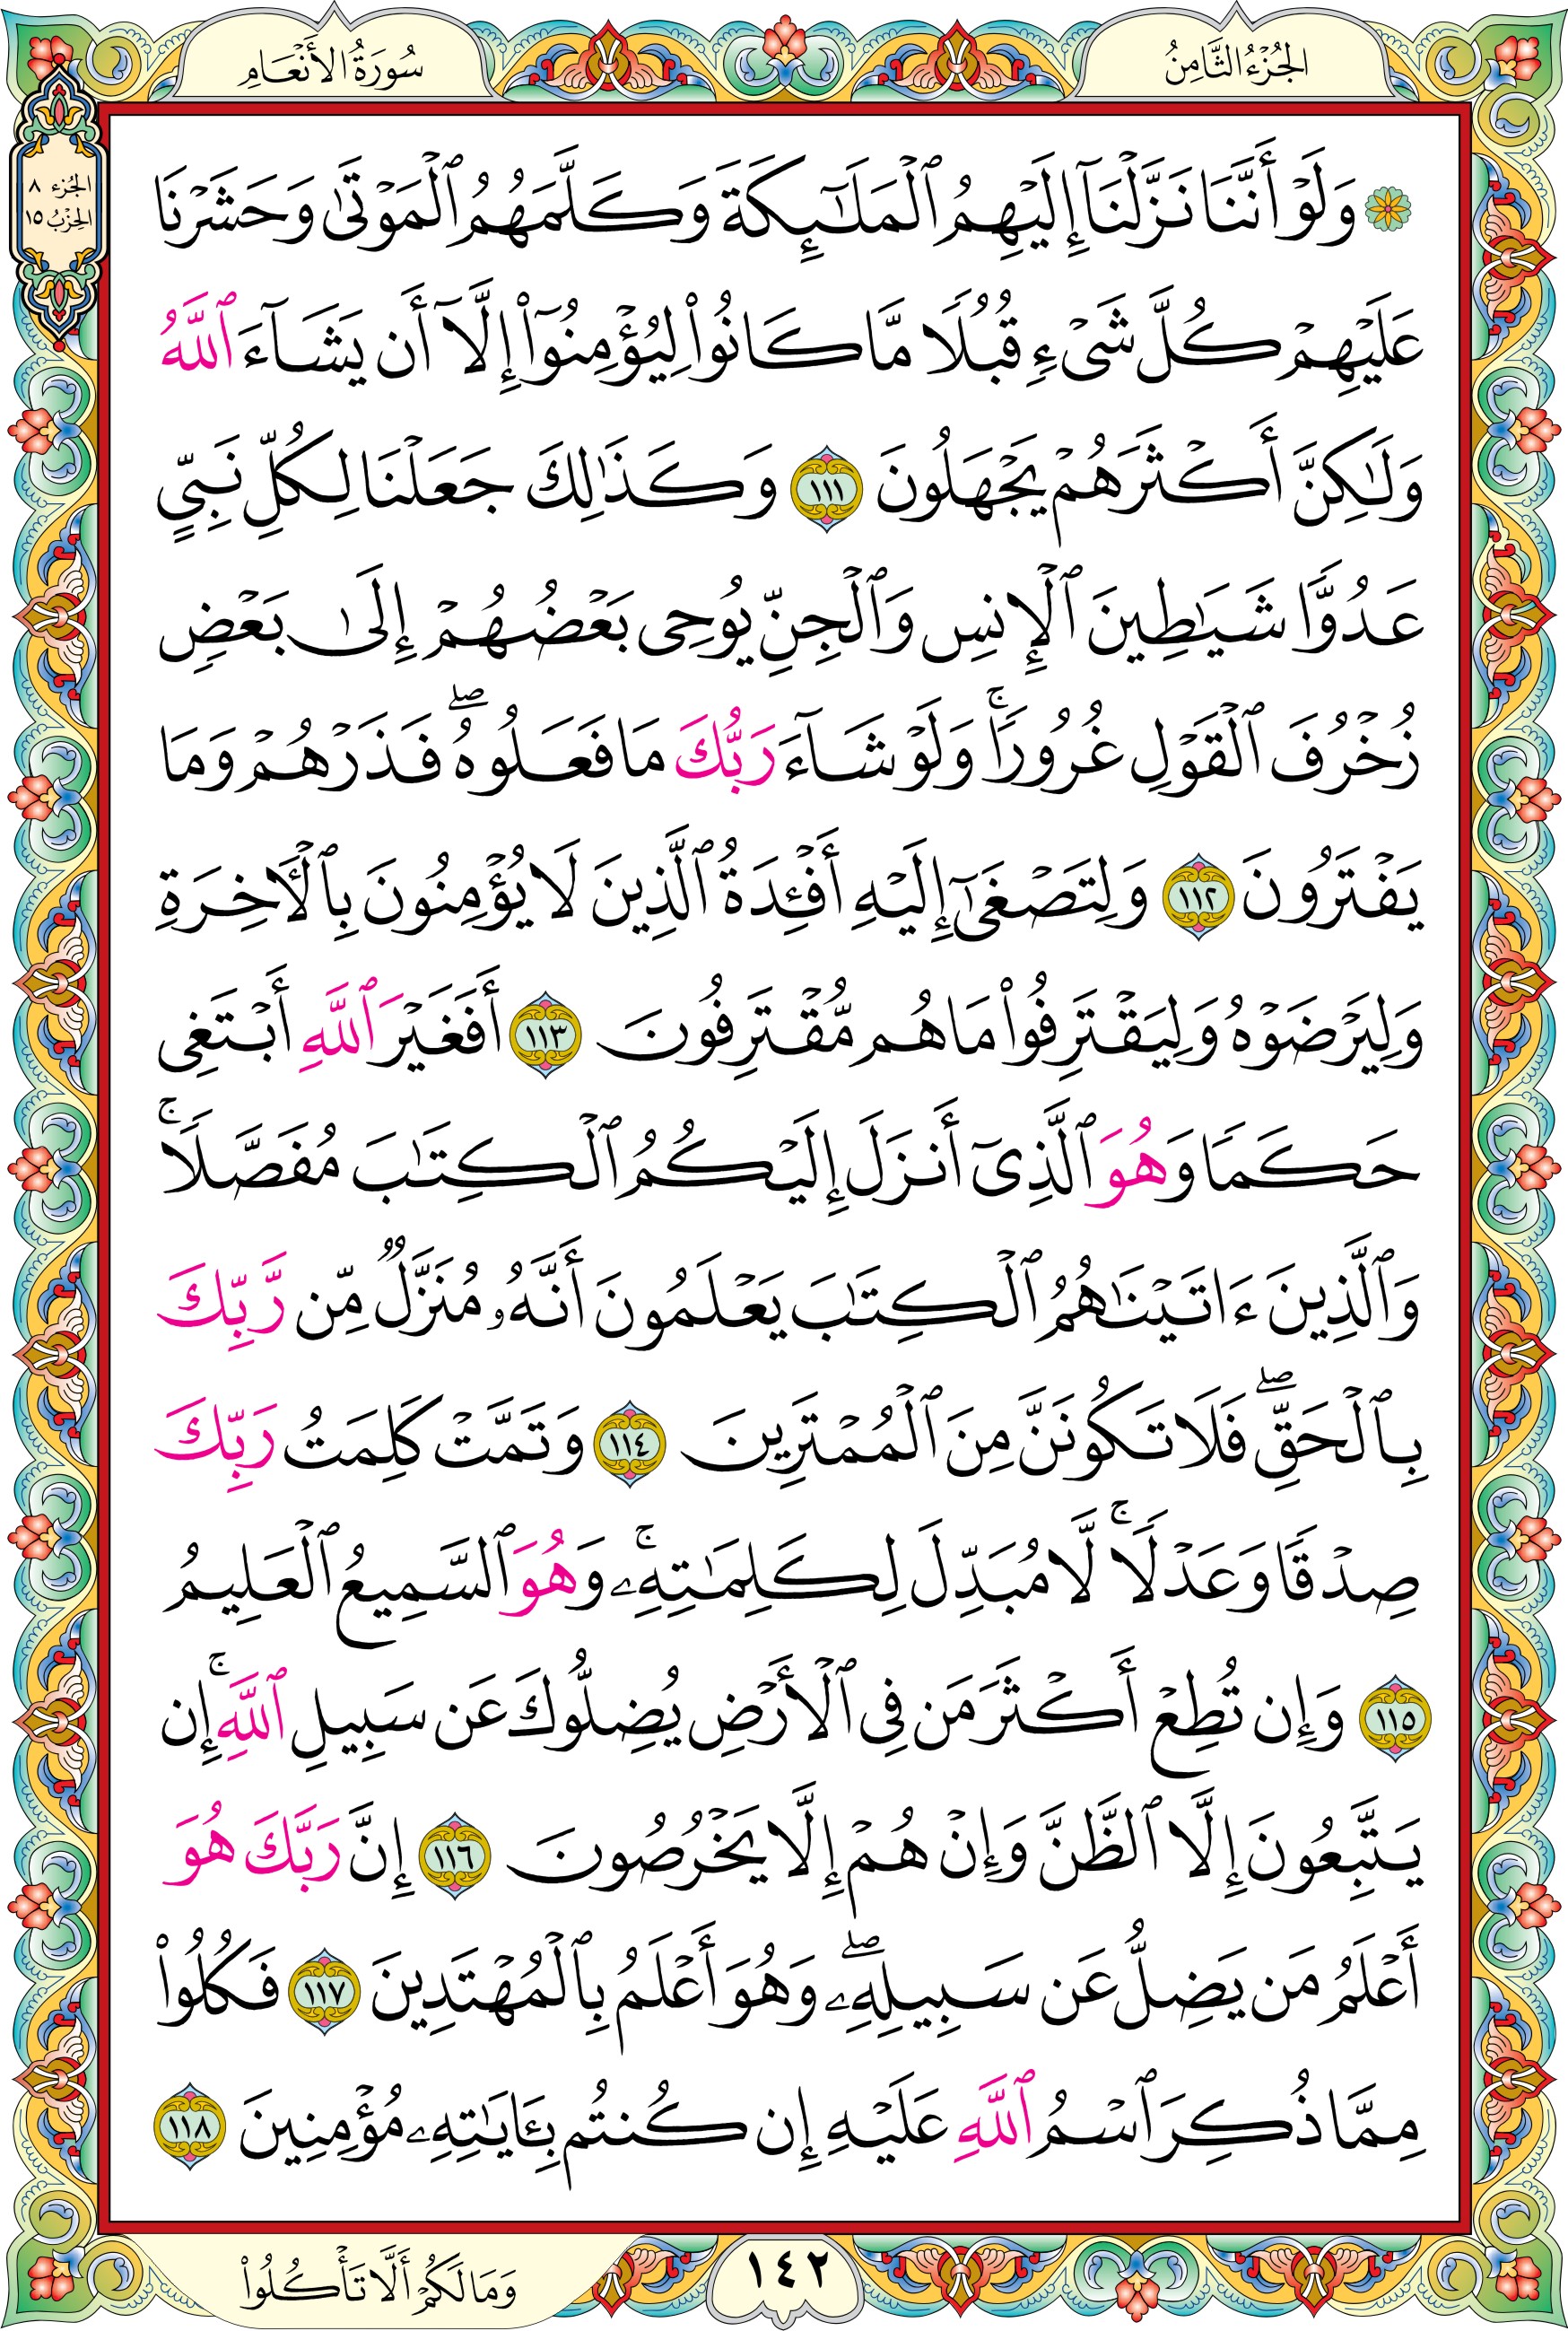 الجُزْءُ الثَّامِنُ
سُورَةُ الأَنْعَامِ
الجُزْء ٨
الحِزْبُ ١٥
۞ وَلَوْ أَنَّنَا نَزَّلْنَآ إِلَيْهِمُ ٱلْمَلَـٰٓئِكَةَ وَكَلَّمَهُمُ ٱلْمَوْتَىٰ وَحَشَرْنَا
عَلَيْهِمْ كُلَّ شَىْءٍ قُبُلًا مَّا كَانُوا۟ لِيُؤْمِنُوٓا۟ إِلَّآ أَن يَشَآءَ ٱللَّهُ
وَلَـٰكِنَّ أَكْثَرَهُمْ يَجْهَلُونَ ١١١ وَكَذَٰلِكَ جَعَلْنَا لِكُلِّ نَبِىٍّ
عَدُوًّا شَيَـٰطِينَ ٱلْإِنسِ وَٱلْجِنِّ يُوحِى بَعْضُهُمْ إِلَىٰ بَعْضٍ
زُخْرُفَ ٱلْقَوْلِ غُرُورًا ۚ وَلَوْ شَآءَ رَبُّكَ مَا فَعَلُوهُ ۖ فَذَرْهُمْ وَمَا
يَفْتَرُونَ ١١٢ وَلِتَصْغَىٰٓ إِلَيْهِ أَفْـِٔدَةُ ٱلَّذِينَ لَا يُؤْمِنُونَ بِٱلْـَٔاخِرَةِ
وَلِيَرْضَوْهُ وَلِيَقْتَرِفُوا۟ مَا هُم مُّقْتَرِفُونَ ١١٣ أَفَغَيْرَ ٱللَّهِ أَبْتَغِى
حَكَمًا وَهُوَ ٱلَّذِىٓ أَنزَلَ إِلَيْكُمُ ٱلْكِتَـٰبَ مُفَصَّلًا ۚ
وَٱلَّذِينَ ءَاتَيْنَـٰهُمُ ٱلْكِتَـٰبَ يَعْلَمُونَ أَنَّهُۥ مُنَزَّلٌ مِّن رَّبِّكَ
بِٱلْحَقِّ ۖ فَلَا تَكُونَنَّ مِنَ ٱلْمُمْتَرِينَ ١١٤ وَتَمَّتْ كَلِمَتُ رَبِّكَ
صِدْقًا وَعَدْلًا ۚ لَّا مُبَدِّلَ لِكَلِمَـٰتِهِۦ ۚ وَهُوَ ٱلسَّمِيعُ ٱلْعَلِيمُ
١١٥ وَإِن تُطِعْ أَكْثَرَ مَن فِى ٱلْأَرْضِ يُضِلُّوكَ عَن سَبِيلِ ٱللَّهِ ۚ إِن
يَتَّبِعُونَ إِلَّا ٱلظَّنَّ وَإِنْ هُمْ إِلَّا يَخْرُصُونَ ١١٦ إِنَّ رَبَّكَ هُوَ
أَعْلَمُ مَن يَضِلُّ عَن سَبِيلِهِۦ ۖ وَهُوَ أَعْلَمُ بِٱلْمُهْتَدِينَ ١١٧ فَكُلُوا۟
مِمَّا ذُكِرَ ٱسْمُ ٱللَّهِ عَلَيْهِ إِن كُنتُم بِـَٔايَـٰتِهِۦ مُؤْمِنِينَ ١١٨
١٤٢
وَمَا لَكُمْ أَلَّا تَأْكُلُوا۟